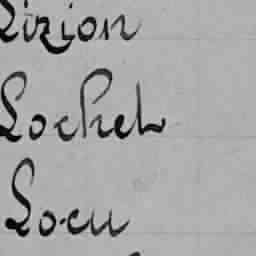 Lizion
Lockel
Locu